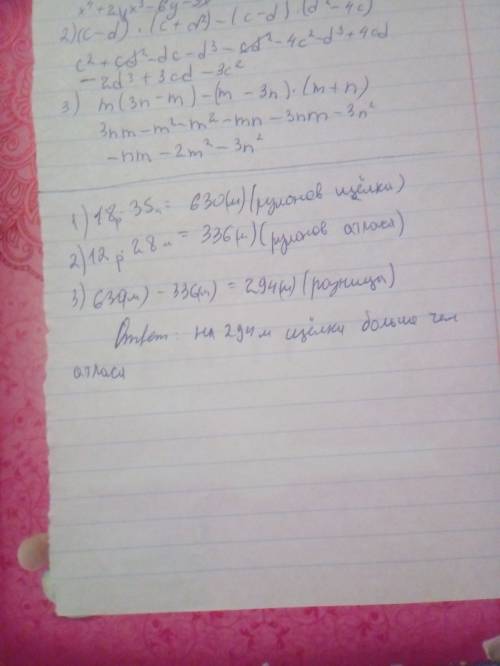 x⁴ + 2yx³ - 6y
2) (c-d) · (c+d²) - (c-d) · (d²-4c)
c² + cd² - dc - d³ - cd² - 4c² - d³ + 4cd
-2d³ + 3cd - 3c²
3) m(3n-m) - (m-3n) · (m+n)
3nm - m² - m² - mn - 3nm - 3n²
-nm - 2m² - 3n²
1) 18р · 35м = 630(м) (рулонов щёлки)
2) 12р · 28м = 336(м) (рулонов атласа)
3) 630(м) - 336(м) = 294(м) (разница)
Ответ: на 294м щёлки больше чем
атласа